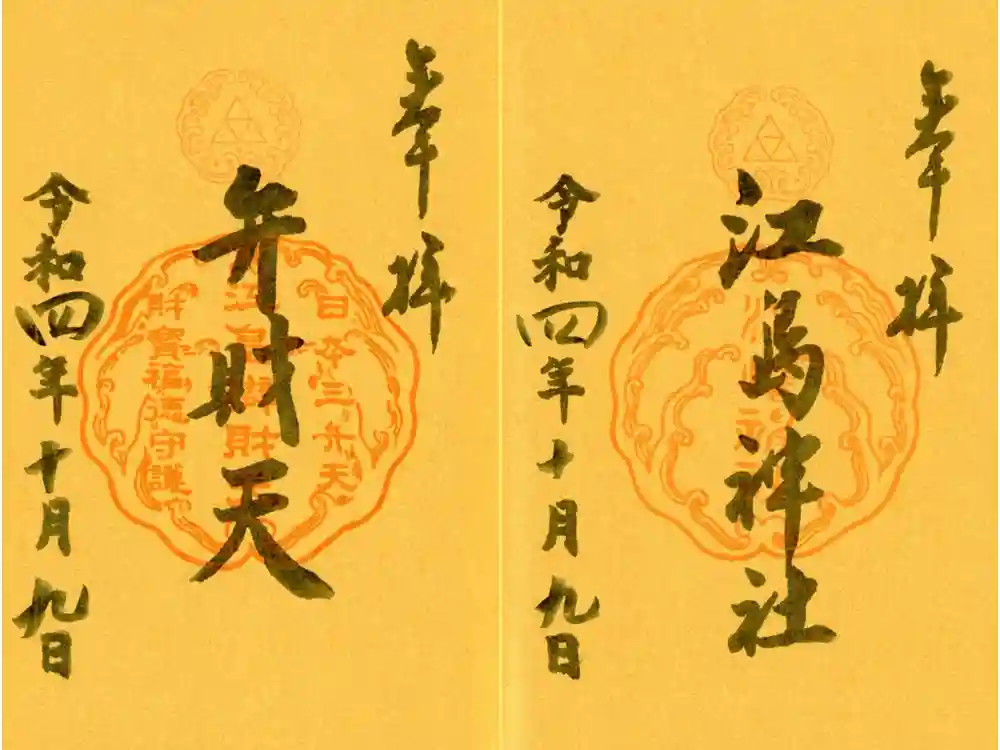 奉拝
江島神社
令和四年十月九日
奉拝
弁財天
令和四年十月九日
日本三弁天
江島辨財天
財寶福德守護